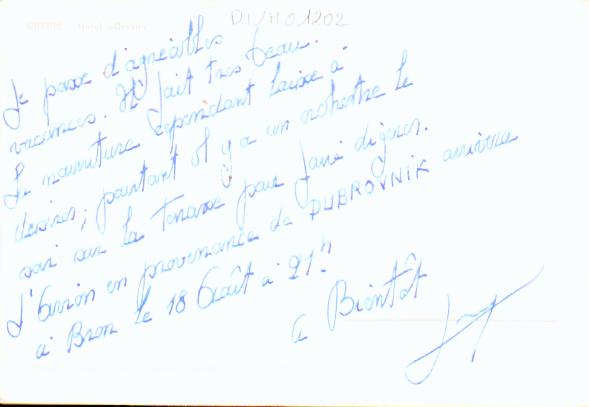 DI/HO1202
Je passe d'agréables
vacances. Il fait très beau.
La nourriture cependant laisse à
désirer ; pourtant il y a un orchestre le
soir sur la terrasse pour faire digérer.
L'avion en provenance de DUBROVNIK arrivera
à Bron le 18 Août à 21h.
a Bientôt